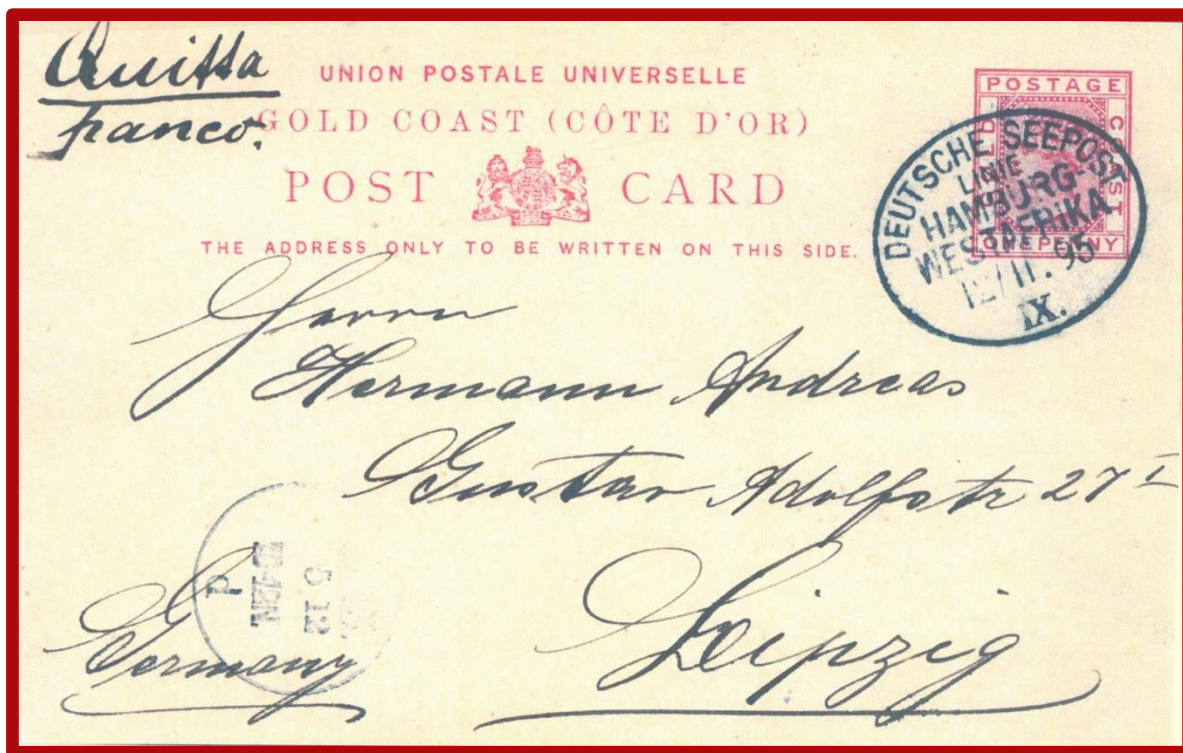 Quitta
franco.
UNION POSTALE UNIVERSELLE
GOLD COAST (CÔTE D'OR)
POST CARD
THE ADDRESS ONLY TO BE WRITTEN ON THIS SIDE.
POSTAGE
ONE PENNY
DEUTSCHE SEEPOST
LINIE
HAMBURG-
WESTAFRIKA
12/11.95
IX.
Herrn
Hermann Andreas
Gustav Adolfstr 27 I
Leipzig
Germany
5 12
d